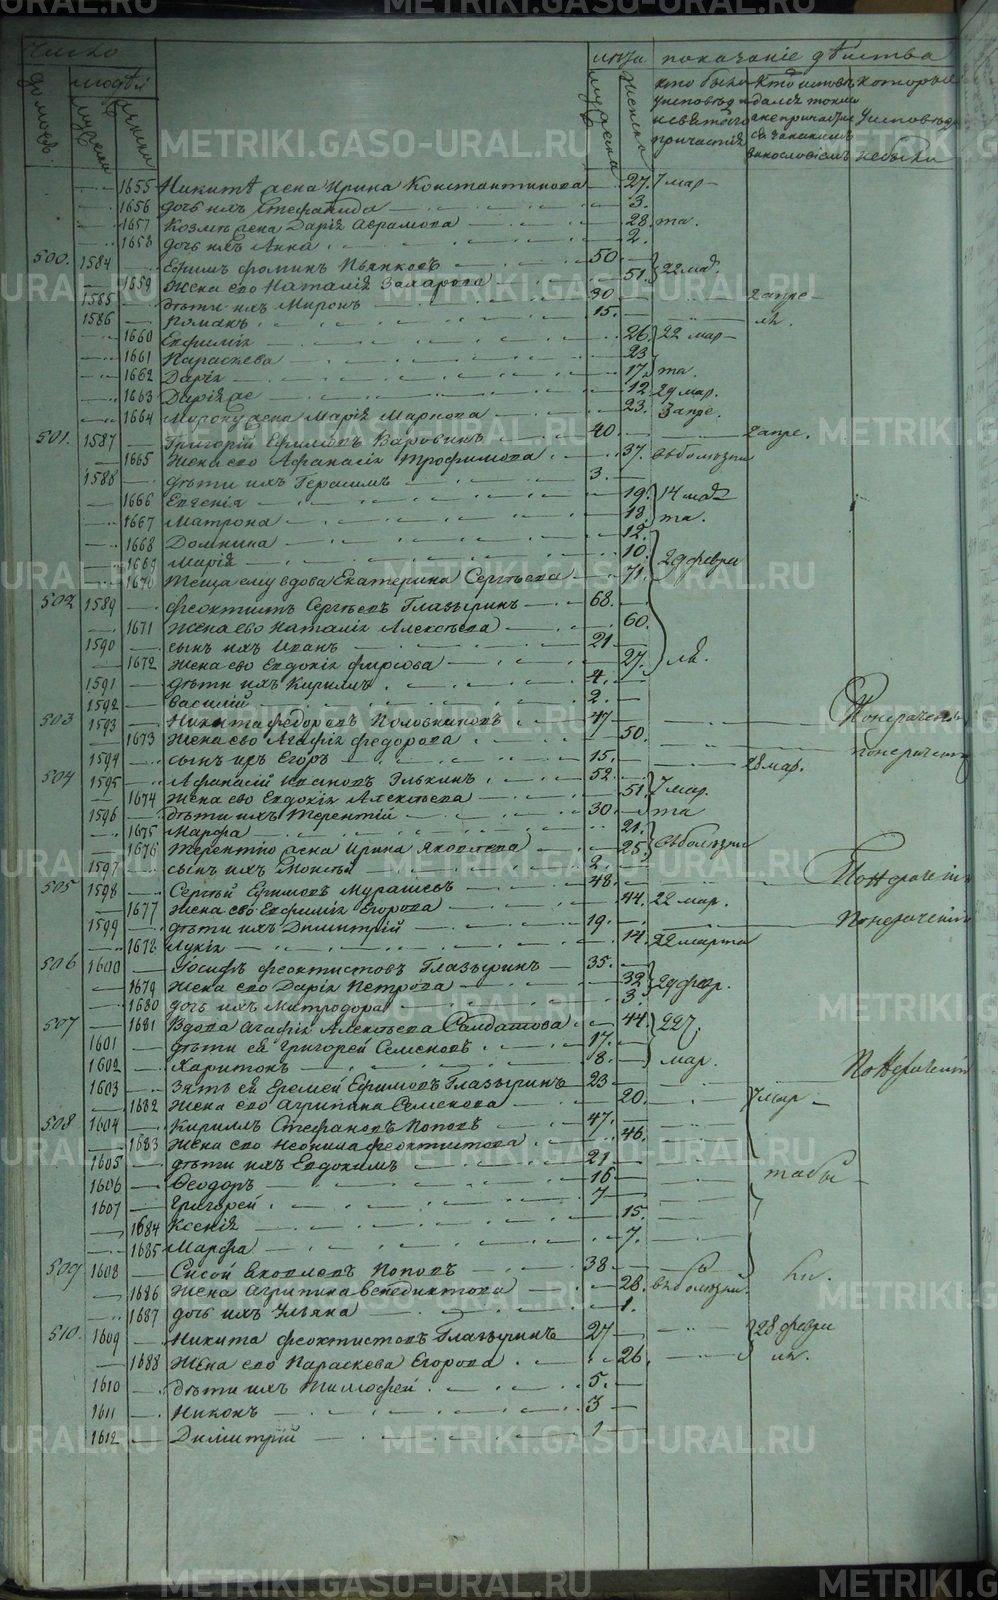 число лѣта показанiе дѣйства
домовъ людей мужска женска мужска женска кто были у исповѣди и святаго причастiя Кто исповѣдался токмо а не причастился за какимъ винословiемъ которые у исповѣди не были
1655 Никитѣ жена Ирина Константинова 27. 7 мар
1656 дочь ихъ Стефанида 3.
1657 Козмѣ жена Дарiя Аврамова 28. та.
1658 дочь ихъ Анна 2.
500. 1584 Ефимъ Фоминъ Пьянковъ 50 22 мар.
1659 Жена его Наталiя Захарова 51.
1585 дѣти ихъ Миронъ 30 2 апре
1586 Романъ 15. ля.
1660 Евфимiя 26. 22 мар
1661 Параскева 23
1662 Дарiя 17. та.
1663 Дарiя же 12. 29 мар.
1664 Мирону жена Марiя Маркова 23. 3 апре.
501. 1587 Григорiй Ефимовъ Каровинъ 40 2 апре.
1665 Жена его Афанасiя Трофимова 37. въ болѣзни
1588 дѣти ихъ Герасимъ 3.
1666 Евгенiя 19. 14 мар
1667 Матрона 18 та.
1668 Домнина 12.
1669 Марiя 10. 29 февра
1670 Теща ему вдова Екатерина Сергѣева 71.
502 1589 Феоктистъ Сергѣевъ Глазыринъ 68.
1671 Жена его Наталiя Алексѣева 60.
1590 сынъ ихъ Иванъ 21
1672 Жена его Евдокiя Фирсова 27. ля.
1591 дѣти ихъ Кириллъ 4.
1592 Василiй 2.
503 1593 Никита Федоровъ Половниковъ 47 По нерачен
1673 Жена его Агафiя Федорова 50. по нерачен
1594 сынъ ихъ Егоръ 15. 28 мар.
504 1595 Афанасiй Ивановъ Элькинъ 52.
1674 Жена его Евдокiя Алексѣева 51. 7 мар.
1596 дѣти ихъ Терентiй 30 та
1675 Марфа 21.
1676 Терентiю жена Ирина Яковлева 25. въ болѣзни
1597 сынъ ихъ Моисѣй 2.
505 1598 Сергѣй Ефимовъ Мурашевъ 48. По нераченiю
1677 Жена его Евфимiя Егорова 44. 22 мар.
1599 дѣти ихъ Димитрiй 19. По нераченiю
1678 Лукiя 14. 22 марта
506 1600 Iосифъ Феоктистовъ Глазыринъ 35.
1679 Жена его Дарiя Петрова 32 29 февр.
1680 дочь ихъ Митродора 3.
507 1681 Вдова Агафiя Алексѣева Салдатова 44. 22
1601 дѣти ея Григорей Семеновъ 17.
1602 Харитонъ 8. мар. По Нераченiю
1603 Зять ея Еремей Ефимовъ Глазыринъ 23
1682 Жена его Агрипина Семенова 20. 7 мар
508 1604 Кириллъ Стефановъ Поповъ 47.
1683 Жена его Неонила Феоктистова 46.
1605 дѣти ихъ Евдокимъ 21
1606 Ѳеодоръ 16
1607 Григорей 7
1684 Ксенiя 15.
1685 Марфа 7.
509 1608 Сысой Яковлевъ Поповъ 38.
1686 Жена Агрипина Венедиктова 28. въ болѣзни.
1687 дочь ихъ Ульяна 1.
510. 1609 Никита Феоктистовъ Глазыринъ 27 28 февра
1688 Жена его Параскева Егорова 26. ля.
1610 дѣти ихъ Тимофей 5.
1611 Никонъ 3
1612 Димитрiй 1
METRIKI.GASO-URAL.RU